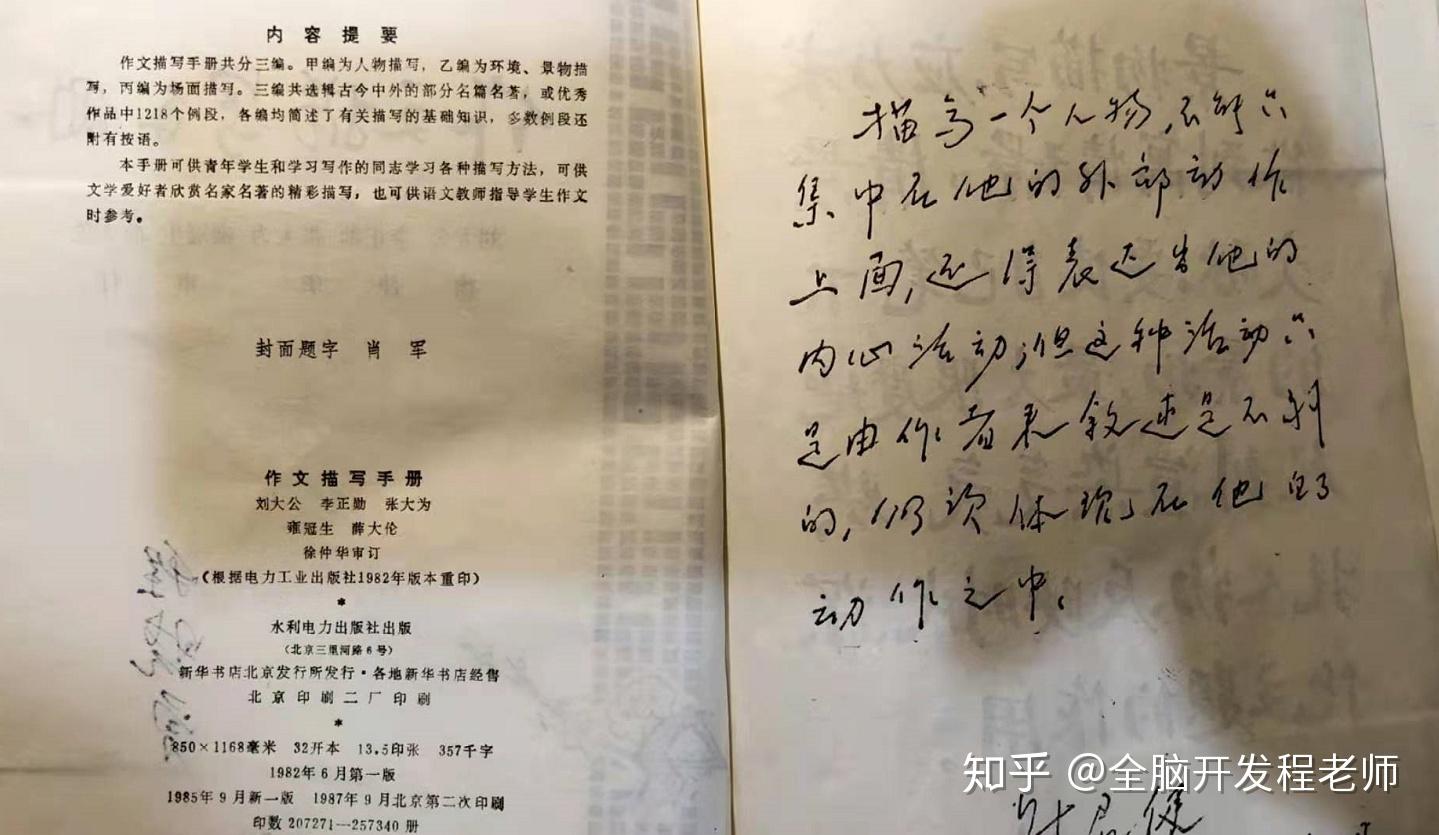 内容提要
作文描写手册共分三编。甲编为人物描写，乙编为环境、景物描
写，丙编为场面描写。三编共选辑古今中外的部分名篇名著，或优秀
作品中1218个例段，各编均简述了有关描写的基础知识，多数例段还
附有按语。
本手册可供青年学生和学习写作的同志学习各种描写方法，可供
文学爱好者欣赏名家名著的精彩描写，也可供语文教师指导学生作文
时参考。
封面题字 肖 军
作文描写手册
刘大公 李正勋 张大为
雍冠生 薛大伦
徐仲华审订
（根据电力工业出版社1982年版本重印）
*
水利电力出版社出版
（北京三里河路6号）
新华书店北京发行所发行·各地新华书店经售
北京印刷二厂印刷
*
850×1168毫米 32开本 13.5印张 357千字
1982年6月第一版
1985年9月新一版 1987年9月北京第二次印刷
印数 207271—257340 册
描写一个人物，不能只
集中在他的外部动作
上面，还得表达出他的
内心活动；但这种活动只
是由作者来叙述是不利
的，仍须体现在他的
动作之中。
知乎 @全脑开发程老师